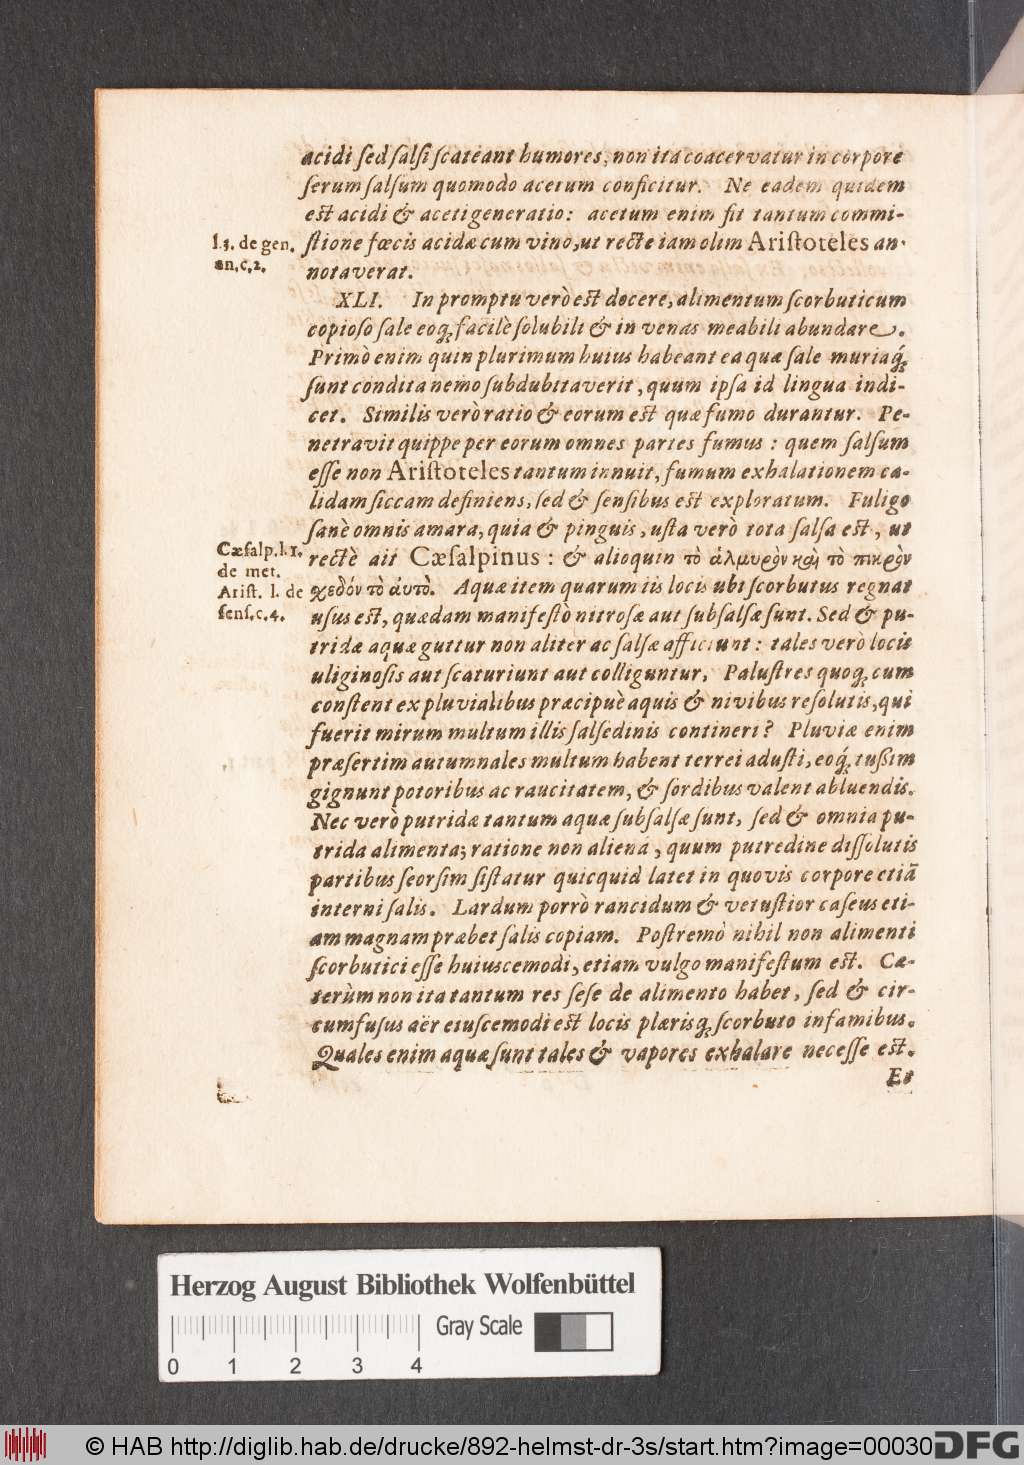 acidi ſed ſalſi ſcateant humores, non ita coacervatur in corpore
ſerum ſalſum quomodo acetum conficitur. Ne eadem quidem
eſt acidi & aceti generatio: acetum enim fit tantum commi-
l.3. de gen.
an.c.2.
ſtione fœcis acidæ cum vino, ut recte iam olim Ariſtoteles an-
notaverat.
XLI. In promptu verò eſt docere, alimentum ſcorbuticum
copioſo ſale eoq; facilè ſolubili & in venas meabili abundare.
Primò enim quin plurimum huius habeant ea quæ ſale muriaq́;
ſunt condita nemo ſubdubitaverit, quum ipſa id lingua indi-
cet. Similis verò ratio & eorum eſt quæ fumo durantur. Pe-
netravit quippe per eorum omnes partes fumus: quem ſalſum
eſſe non Ariſtoteles tantum innuit, fumum exhalationem ca-
lidam ſiccam definiens, ſed & ſenſibus eſt exploratum. Fuligo
ſanè omnis amara, quia & pinguis, uſta verò tota ſalſa eſt, ut
Cæſalp.l.1.
de met.
Ariſt. l. de
ſenſ.c.4.
rectè ait Cæſalpinus: & alioquin τὸ ἁλμυρὸν καὶ τὸ πικρὸν
σχεδόν τὸ ἀυτὸ. Aquæ item quarum iis locis ubi ſcorbutus regnat
uſus eſt, quædam manifeſtò nitroſæ aut ſubſalſæ ſunt. Sed & pu-
tridæ aquæ guttur non aliter ac ſalſæ afficiunt: tales verò locis
uliginoſis aut ſcaturiunt aut colliguntur. Paluſtres quoq; cum
conſtent ex pluvialibus præcipuè aquis & nivibus reſolutis, qui
fuerit mirum multum illis ſalſedinis contineri? Pluviæ enim
præſertim autumnales multum habent terrei aduſti, eoq́; tußim
gignunt potoribus ac raucitatem, & ſordibus valent abluendis.
Nec verò putridæ tantum aquæ ſubſalſæ ſunt, ſed & omnia pu-
trida alimenta; ratione non aliena, quum putredine diſſolutis
partibus ſeorſim ſiſtatur quicquid latet in quovis corpore etiã
interni ſalis. Lardum porrò rancidum & vetuſtior caſeus eti-
am magnam præbet ſalis copiam. Poſtremò nihil non alimenti
ſcorbutici eſſe huiuscemodi, etiam vulgo manifeſtum eſt. Cæ-
terùm non ita tantum res ſeſe de alimento habet, ſed & cir-
cumfuſus aër eiuſcemodi eſt locis plærisq; ſcorbuto infamibus.
Quales enim aquæ ſunt tales & vapores exhalare neceſſe eſt.
Et
Herzog August Bibliothek Wolfenbüttel
Gray Scale
0 1 2 3 4
© HAB http://diglib.hab.de/drucke/892-helmst-dr-3s/start.htm?image=00030
DFG